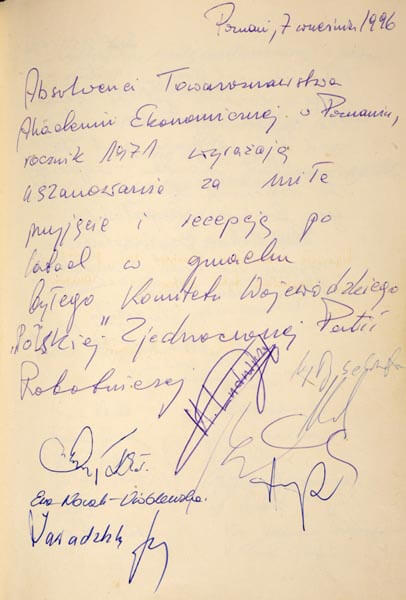 Poznań, 7 wrzesień 1996
Absolwenci Towaroznawstwa
Akademii Ekonomicznej w Poznaniu,
rocznik 1971 wyrażają
uszanowanie za miłe
przyjęcie i recepcję po
latach w gmachu
byłego Komitetu Wojewódzkiego
"Polskiej" Zjednoczonej Partii
Robotniczej
Ewa Nowak-